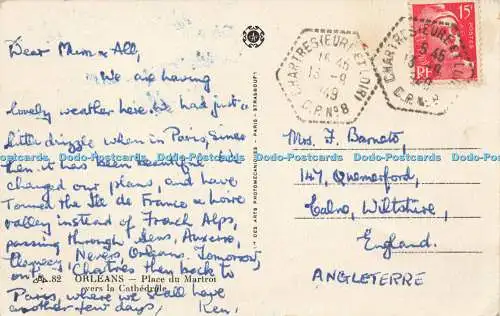 Dear Mum & All,
We are having
lovely weather here. We had just a
little drizzle when in Paris, since
then it has been beautiful. We
changed our plans, and have
Toured the Ile de France & Loire
valley instead of French Alps,
passing through Sens, Auxerre,
Nevers, Orleans. Tomorrow,
on to Chartres then back to
Paris, where we shall have
another few days, Ken.
82 ORLÉANS — Place du Martroi
vers la Cathédrale
IE DES ARTS PHOTOMÉCHANIQUES - PARIS - STRASBOURG
CHARTRES (EURE ET LOIR)
16 45
13 - 9
49
C.P. N° 8
CHARTRES (EURE ET LOIR)
45
13 - 9
C.P. N° 8
15F
RF
Mrs. F. Barnets,
147, Quemerford,
Calne, Wiltshire,
England.
ANGLETERRE
Dodo-Postcards Dodo-Postcards Dodo-Postcards Dodo-Postcards Dodo-Postcards